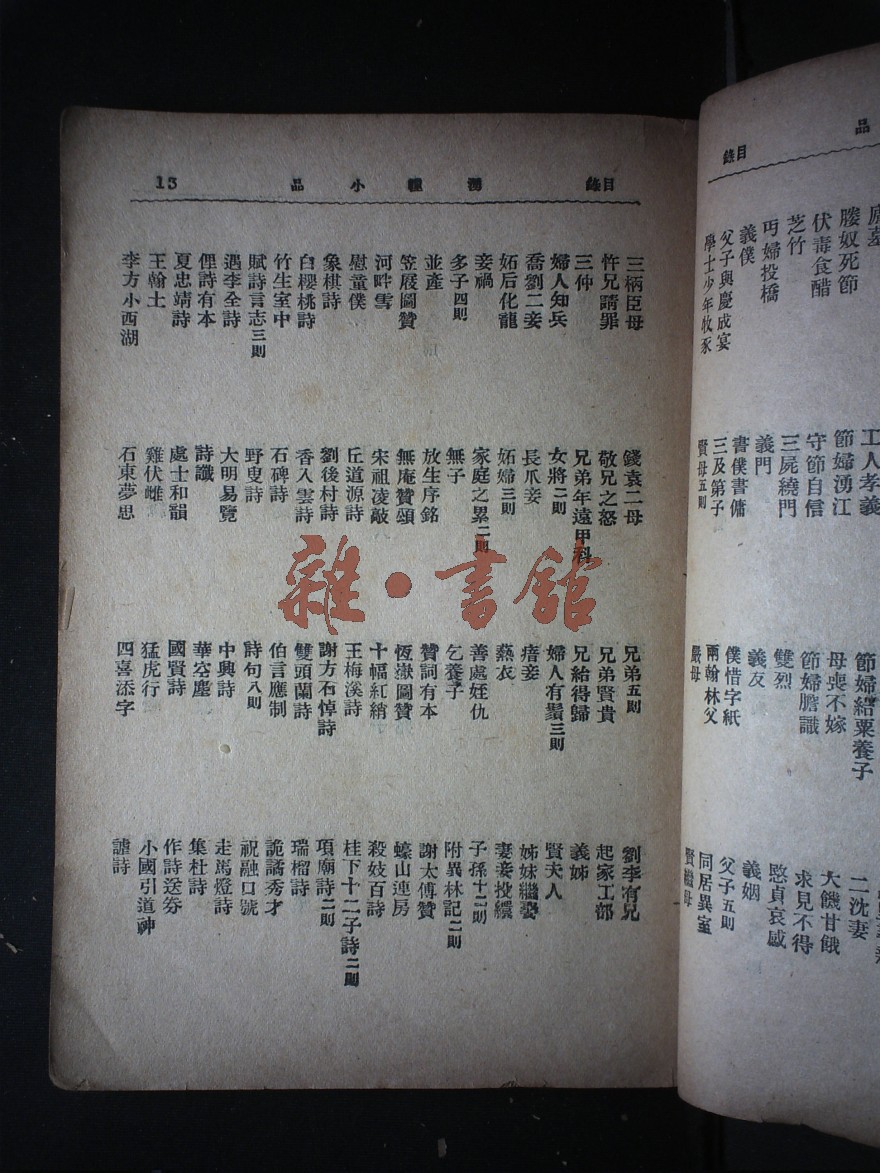 品
目錄
廬墓 工人孝義 節婦結粟養子 二沈妻
媵奴死節 節婦湧江 母喪不嫁 大饑甘餓
伏毒食醋 守節自信 節婦膽識 求見不得
芝竹 三屍繞門 雙烈 愍貞哀感
丐婦投橋 義門 義友 義姻
義僕 書僕書傭 僕惜字紙 父子五則
父子與慶成宴 三及第子 兩翰林父 同居異室
學士少年牧豕 賢母五則 嚴母 賢繼母
目錄 湧幢小品 13
三柄臣母 錢袁二母 兄弟五則 劉李有兄
忤兄請罪 敬兄之怒 兄弟賢貴 起家工部
三仲 兄弟年遠甲科 兄給得歸 義姊
婦人知兵 女將二則 婦人有鬚三則 賢夫人
喬劉二妾 長爪妾 瘖妾 姊妹繼娶
妬后化龍 妬婦三則 爇衣 妻妾投繯
妾禍 家庭之累二則 善處姪仇 子孫十二則
多子四則 無子 乞養子 附異林記二則
並產 放生序銘 贊詞有本 謝太傅贊
笠屐圖贊 無庵贊頌 恆嶽圖贊 蠔山連房
河畔雪 宋祖凌歊 十幅紅綃 殺妓百詩
慰童僕 丘道源詩 王梅溪詩 桂下十二子詩二則
象棋詩 劉後村詩 謝方石悼詩 項廟詩二則
白櫻桃詩 香入雲詩 雙頭蘭詩 瑞榴詩
竹生室中 石碑詩 伯言應制 詭譎秀才
賦詩言志三則 野叟詩 詩句八則 祝融口號
遇李全詩 大明易覽 中興詩 走馬燈詩
俚詩有本 詩讖 華空塵 集杜詩
夏忠靖詩 處士和韻 國賢詩 作詩送券
王翰土 雞伏雌 猛虎行 小國引道神
李方小西湖 石東夢思 四喜添字 謔詩
雜·書館